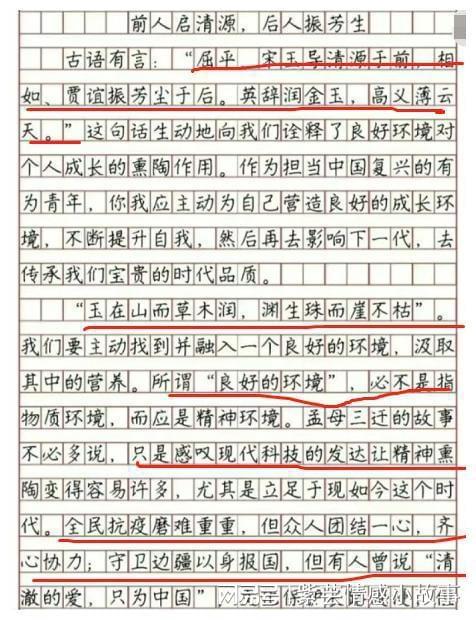 前人启清源，后人振芳生
古语有言：“屈平、宋玉导清源于前，相
如、贾谊振芳尘于后。英辞润金玉，高义薄云
天。”这句话生动地向我们诠释了良好环境对
个人成长的熏陶作用。作为担当中国复兴的有
为青年，你我应主动为自己营造良好的成长环
境，不断提升自我，然后再去影响下一代，去
传承我们宝贵的时代品质。
“玉在山而草木润，渊生珠而崖不枯”。
我们要主动找到并融入一个良好的环境，汲取
其中的营养。所谓“良好的环境”，必不是指
物质环境，而应是精神环境。孟母三迁的故事
不必多说，只是感叹现代科技的发达让精神熏
陶变得容易许多，尤其是立足于现如今这个时
代。全民抗疫磨难重重，但众人团结一心，齐
心协力；守卫边疆以身报国，但有人曾说“清
澈的爱，只为中国”，
情感小故事